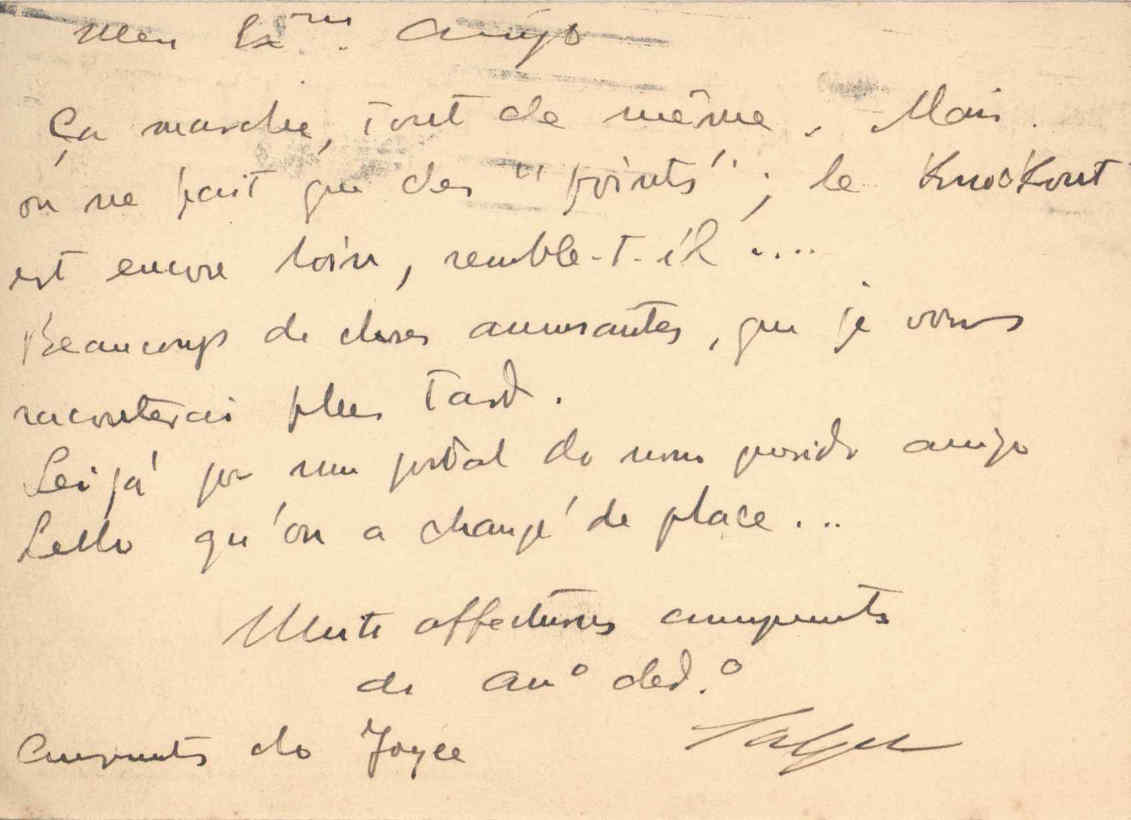 Meu Ex.mo Amigo
Ça marche, tout de même. Mais
on ne fait que des "points"; le Knockout
est encore loin, semble-t-il ....
Beaucoup de choses amusantes, que je vous
raconterai plus tard.
Sei já por um postal do nosso querido amigo
Lello qu'on a changé de place ...
Muito affectuosos cumprimentos
do am.º ded.º
Cumprimentos do Joyce